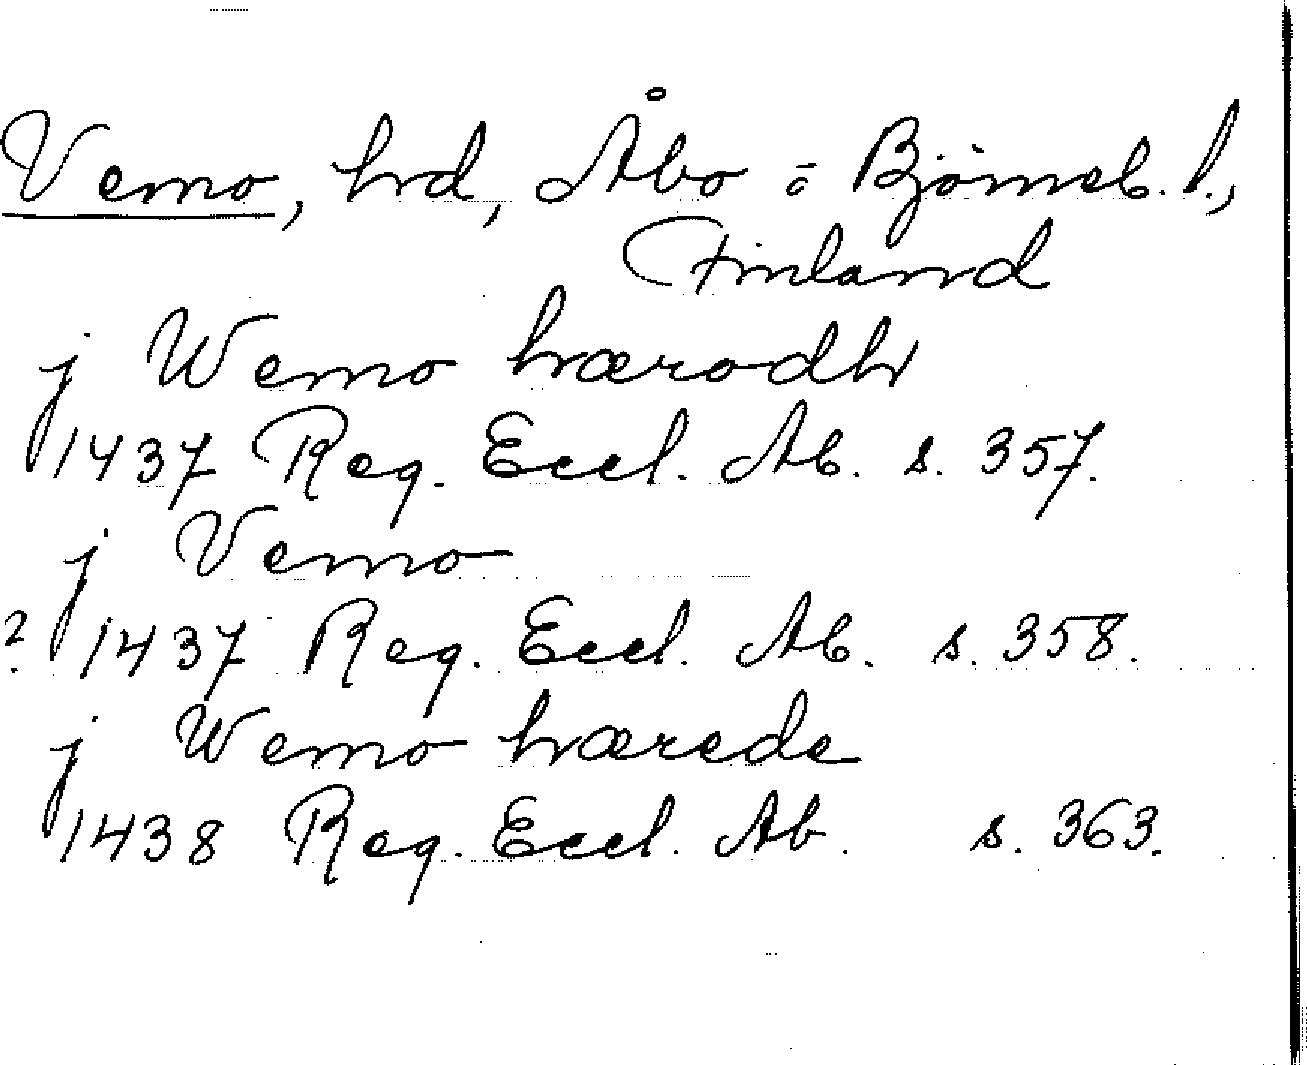 Vemo, hrd, Åbo o Björneb. l.,
Finland
j Wemo hærodh
1437 Reg. Eccl. Ab. s. 357.
j Vemo
? 1437 Reg. Eccl. Ab. s. 358.
j Wemo hærede
1438 Reg. Eccl. Ab. s. 363.